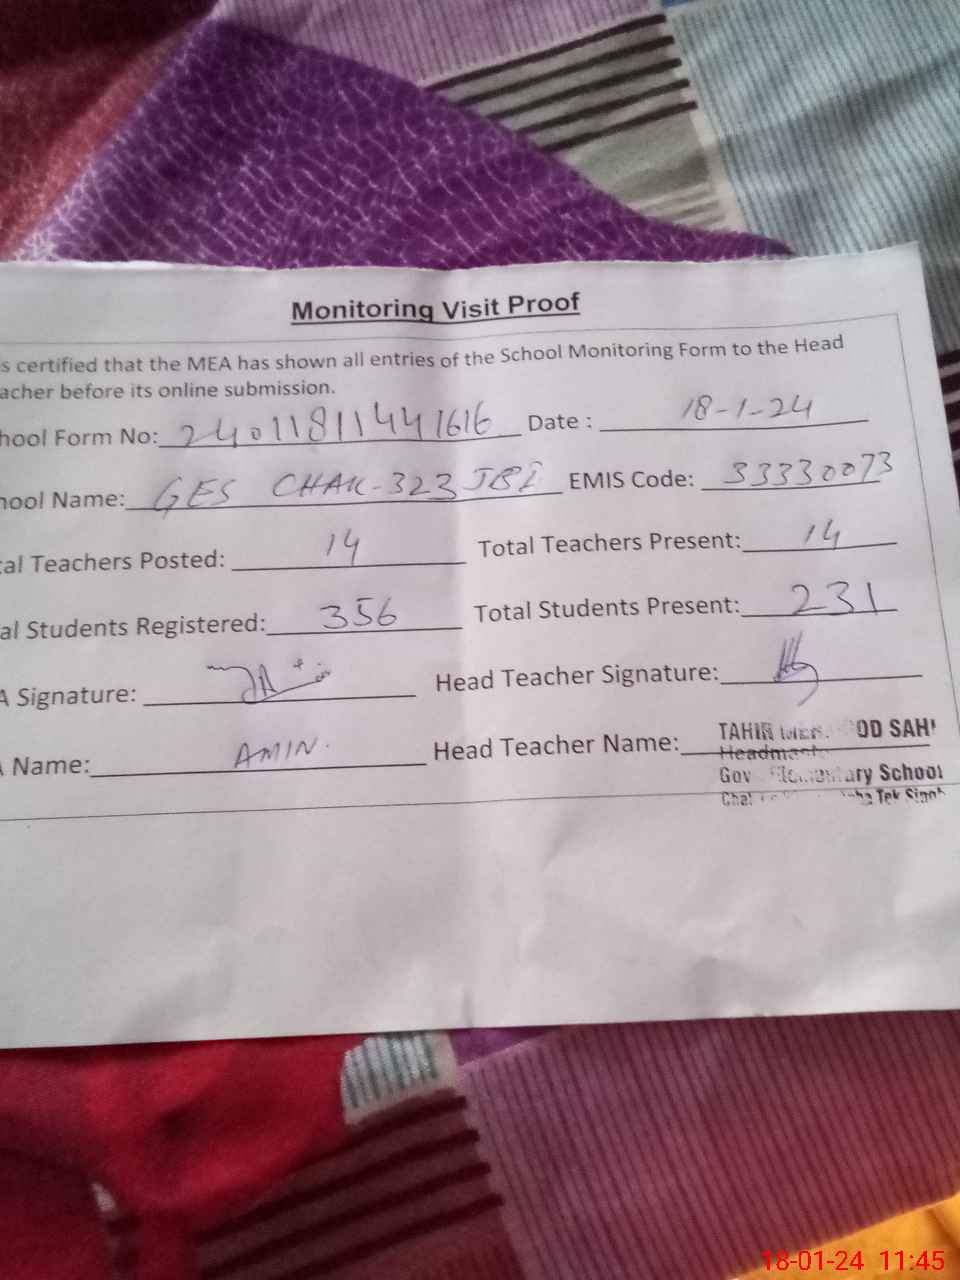 Monitoring Visit Proof
s certified that the MEA has shown all entries of the School Monitoring Form to the Head
acher before its online submission.
hool Form No: 24011811441616 Date : 18-1-24
hool Name: GES CHAK-323 JB EMIS Code: 33330073
tal Teachers Posted: 14 Total Teachers Present: 14
al Students Registered: 356 Total Students Present: 231
A Signature: Head Teacher Signature:
Name: AMIN. Head Teacher Name: TAHIR OD SAH
Headmaste
Gov Elementary School
Cha Tek Singh
18-01-24 11:45